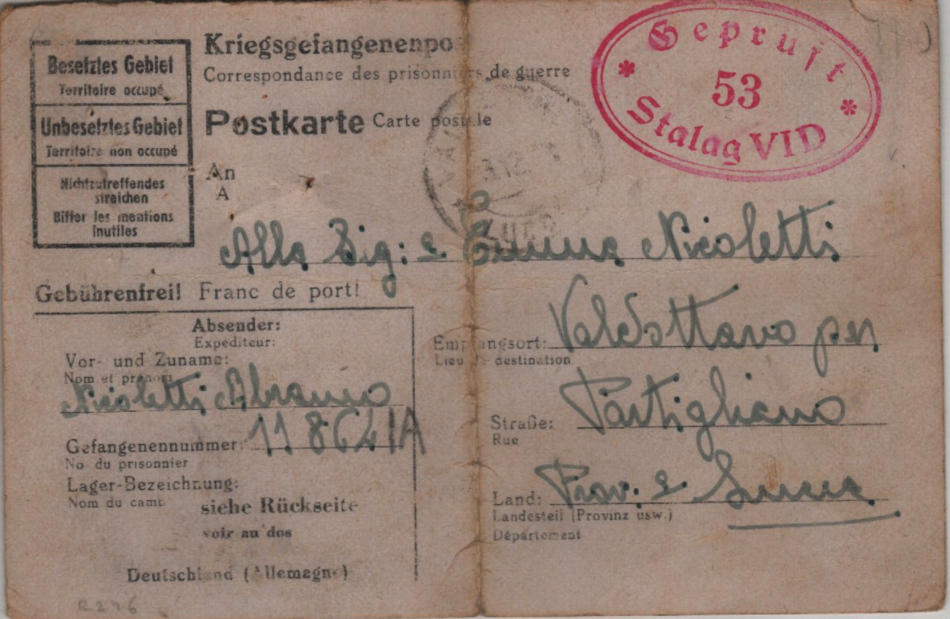 Geprüft
53
Stalag VI D
Kriegsgefangenenpo
Correspondance des prisonniers de guerre
Besetztes Gebiet
Territoire occupé
Unbesetztes Gebiet
Territoire non occupé
Nichtzutreffendes
streichen
Biffer les mentions
inutiles
Postkarte Carte postale
An
A
Alla Sig: Emma Nicoletti
Gebührenfrei! Franc de port!
Absender:
Expéditeur:
Vor- und Zuname:
Nom et prénom
Nicoletti Abramo
Gefangenennummer:
No du prisonnier
Lager-Bezeichnung:
Nom du camp
siehe Rückseite
voir au dos
Deutschland (Allemagne)
Empfangsort: Valdottavo per
Lieu de destination
Partigliano
Straße:
Rue
Land: Prov. Lucca
Landesteil (Provinz usw.)
Département